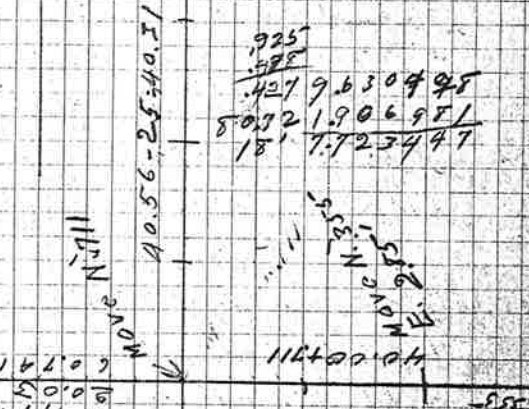 .925
.498
.427 9.630428
80.72 1.906981
18' 7.723447
40.56-25=40.31
Move N. .711
Move N. .355'
E. 2.85'
40.00+.711